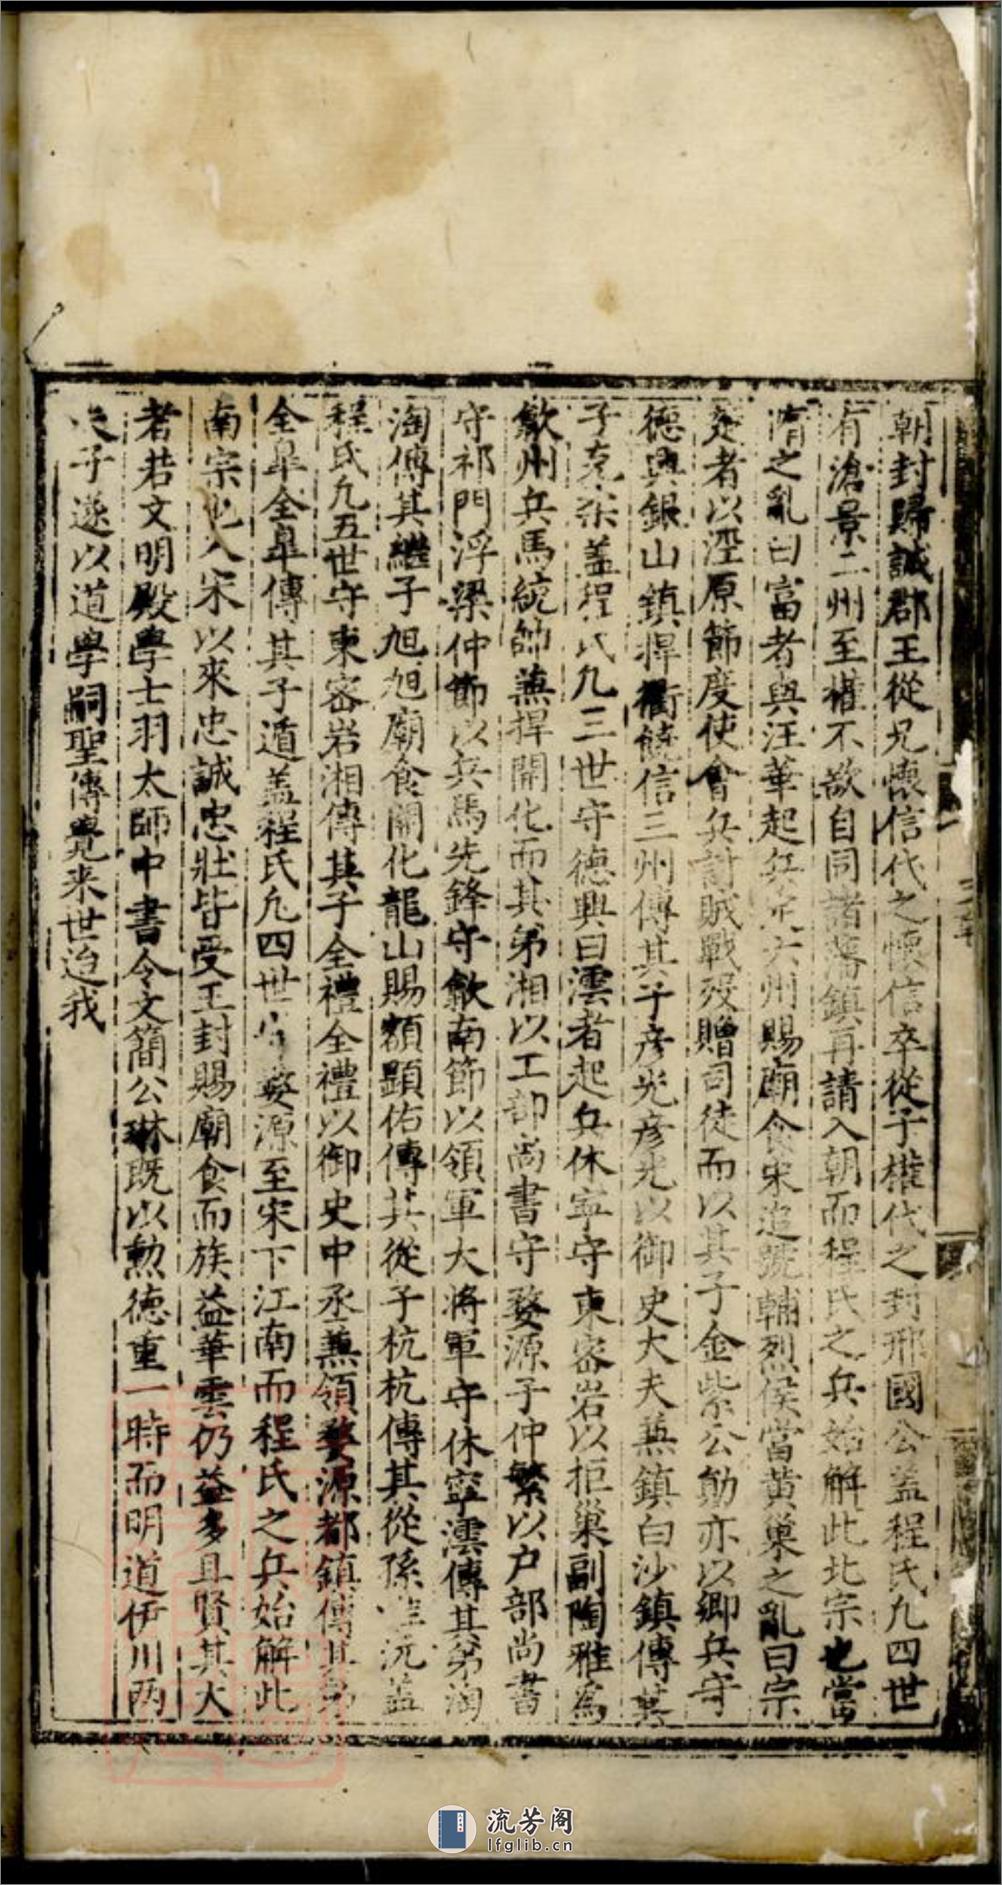 朝封歸誠郡王從兄懷信代之懷信卒從子權代之封邢國公盖程氏凢四世
有滄景二州至權不欲自同諸藩鎮再請入朝而程氏之兵始解此北宗也當
隋之亂曰富者與汪華起兵六州賜廟食宋追號輔烈侯當黃巢之亂曰宗
楚者以涇原節度使會兵討賊戰歿贈司徒而以其子金紫公勛亦以鄉兵守
德興銀山鎮捍衢饒信三州傳其子彦光彦光以御史大夫兼鎮白沙鎮傳其
子克柔盖程氏凢三世守德興曰澐者起兵休寧守東密岩以拒巢副陶雅為
歙州兵馬統帥兼捍開化而其弟湘以工部尚書守婺源子仲繁以户部尚書
守祁門浮梁仲節以兵馬先鋒守歙南節以領軍大將軍守休寧澐傳其弟淘
淘傳其繼子旭旭廟食開化龍山賜額顯佑傳其從子杭杭傳其從孫沅盖
程氏凢五世守東密岩湘傳其子全禮全禮以御史中丞兼領婺源都鎮傳其弟
全臯全臯傳其子遁盖程氏凢四世守婺源至宋下江南而程氏之兵始解此
南宗也入宋以來忠誠忠壯皆受王封賜廟食而族益華雲仍益多且賢其大
者若文明殿學士羽太師中書令文簡公琳既以勲德重一時而明道伊川两
夫子遂以道學嗣聖傳覺来世迨我
流芳阁
lfglib.cn